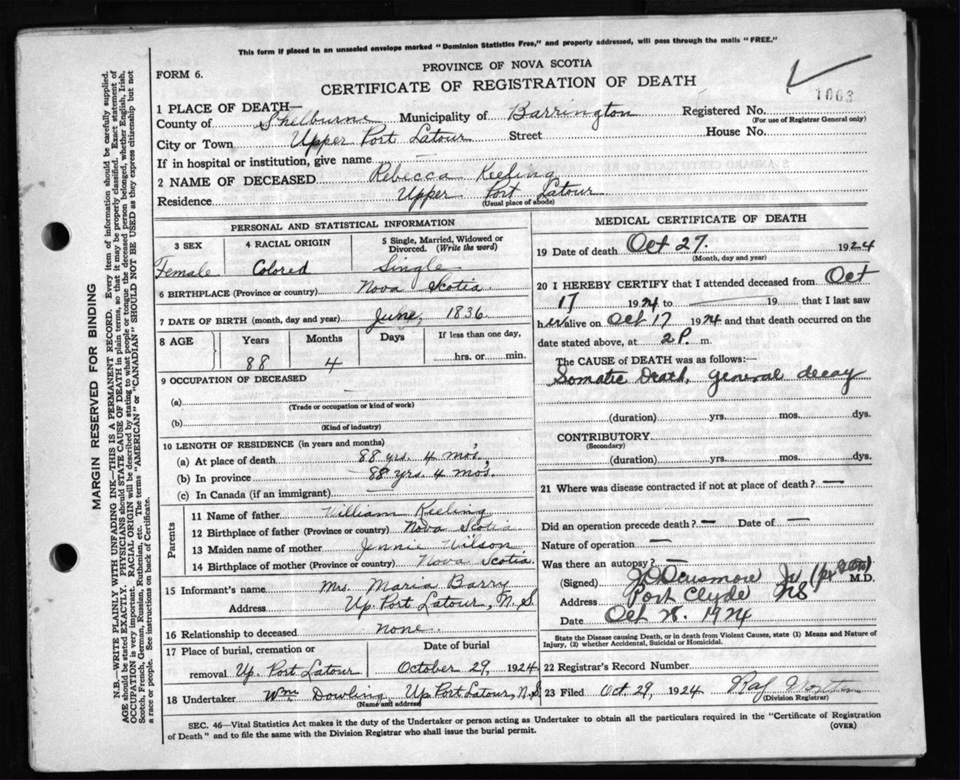 This form if placed in an unsealed envelope marked "Dominion Statistics Free," and properly addressed, will pass through the mails "FREE."
PROVINCE OF NOVA SCOTIA
FORM 6.
CERTIFICATE OF REGISTRATION OF DEATH
1003
1 PLACE OF DEATH—
County of Shelburne Municipality of Barrington Registered No.
(For use of Registrar General only)
City or Town Upper Port Latour Street House No.
If in hospital or institution, give name —
2 NAME OF DECEASED Rebecca Keeling
Residence Upper Port Latour
(Usual place of abode)
PERSONAL AND STATISTICAL INFORMATION
3 SEX 4 RACIAL ORIGIN 5 Single, Married, Widowed or Divorced. (Write the word)
Female Colored Single
6 BIRTHPLACE (Province or country) Nova Scotia
7 DATE OF BIRTH (month, day and year) June, 1836
8 AGE Years Months Days If less than one day,
88 4 hrs. or min.
9 OCCUPATION OF DECEASED
(a) —
(Trade or occupation or kind of work)
(b)
(Kind of industry)
10 LENGTH OF RESIDENCE (in years and months)
(a) At place of death 88 yrs. 4 mo's.
(b) In province 88 yrs. 4 mo's.
(c) In Canada (if an immigrant)
Parents
11 Name of father William Keeling
12 Birthplace of father (Province or country) Nova Scotia
13 Maiden name of mother Jennie Wilson
14 Birthplace of mother (Province or country) Nova Scotia
15 Informant's name Mrs. Maria Barry
Address Up. Port Latour, N. S.
16 Relationship to deceased none.
17 Place of burial, cremation or Date of burial
removal Up. Port Latour October 29, 1924
18 Undertaker Wm Dowling, Up. Port Latour, N. S.
(Name and address)
MEDICAL CERTIFICATE OF DEATH
19 Date of death Oct 27. 1924
(Month, day and year)
20 I HEREBY CERTIFY that I attended deceased from Oct
17 1924 to — 19 that I last saw
her alive on Oct 17 1924 and that death occurred on the
date stated above, at 2 P. m.
The CAUSE OF DEATH was as follows:—
Somatic Death, general decay
(duration) yrs. mos. dys.
CONTRIBUTORY
(Secondary)
(duration) yrs. mos. dys.
21 Where was disease contracted if not at place of death? —
Did an operation precede death? — Date of —
Nature of operation —
Was there an autopsy? —
(Signed) Jr M.D.
Address Port Clyde NS
Date Oct 28. 1924
State the Disease causing Death, or in death from Violent Causes, state (1) Means and Nature of Injury, (2) whether Accidental, Suicidal or Homicidal.
22 Registrar's Record Number
23 Filed Oct 29, 1924
(Division Registrar)
SEC. 46—Vital Statistics Act makes it the duty of the Undertaker or person acting as Undertaker to obtain all the particulars required in the "Certificate of Registration
of Death" and to file the same with the Division Registrar who shall issue the burial permit.
(OVER)
MARGIN RESERVED FOR BINDING
N.B.—WRITE PLAINLY WITH UNFADING INK—THIS IS A PERMANENT RECORD. Every item of information should be carefully supplied.
AGE should be stated EXACTLY. PHYSICIANS should STATE CAUSE OF DEATH in plain terms, so that it may be properly classified. Exact statement of
OCCUPATION is very important. RACIAL ORIGIN will be described by stating to what people or tongue the deceased person belonged, whether English, Irish,
Scotch, French, German, Russian, Ruthenian, etc. The terms "AMERICAN" or "CANADIAN" SHOULD NOT BE USED as they express citizenship but not
a race or people. See instructions on back of Certificate.